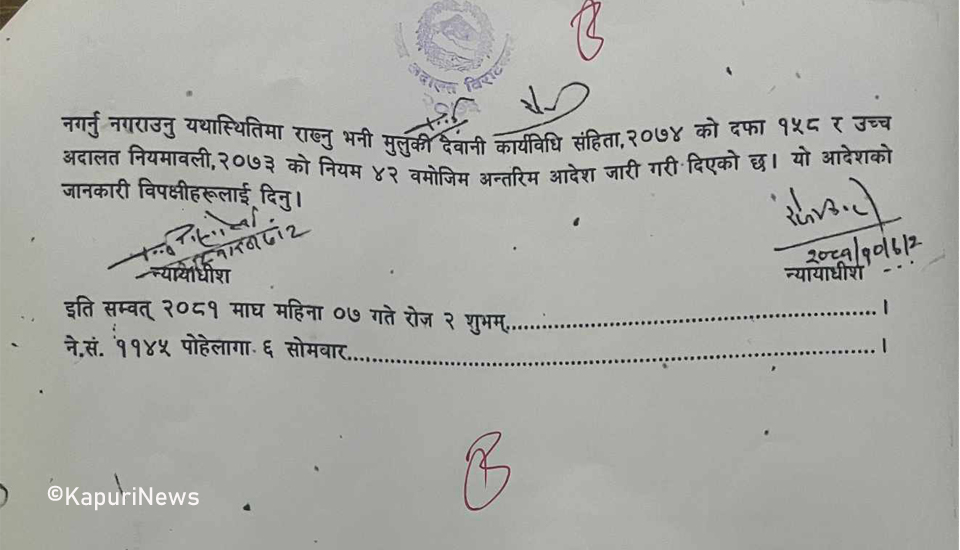 अदालत विराट
नगर्नु नगराउनु यथास्थितिमा राख्नु भनी मुलुकी देवानी कार्यविधि संहिता,२०७४ को दफा १५८ र उच्च
अदालत नियमावली,२०७३ को नियम ४२ वमोजिम अन्तरिम आदेश जारी गरी दिएको छ। यो आदेशको
जानकारी विपक्षीहरूलाई दिनु।
२०८१/१०/७/२
न्यायाधीश
न्यायाधीश
इति सम्वत् २०८१ माघ महिना ०७ गते रोज २ शुभम्...............................................................।
ने.सं. ११४५ पोहेलागा ६ सोमबार...............................................................।
©KapuriNews